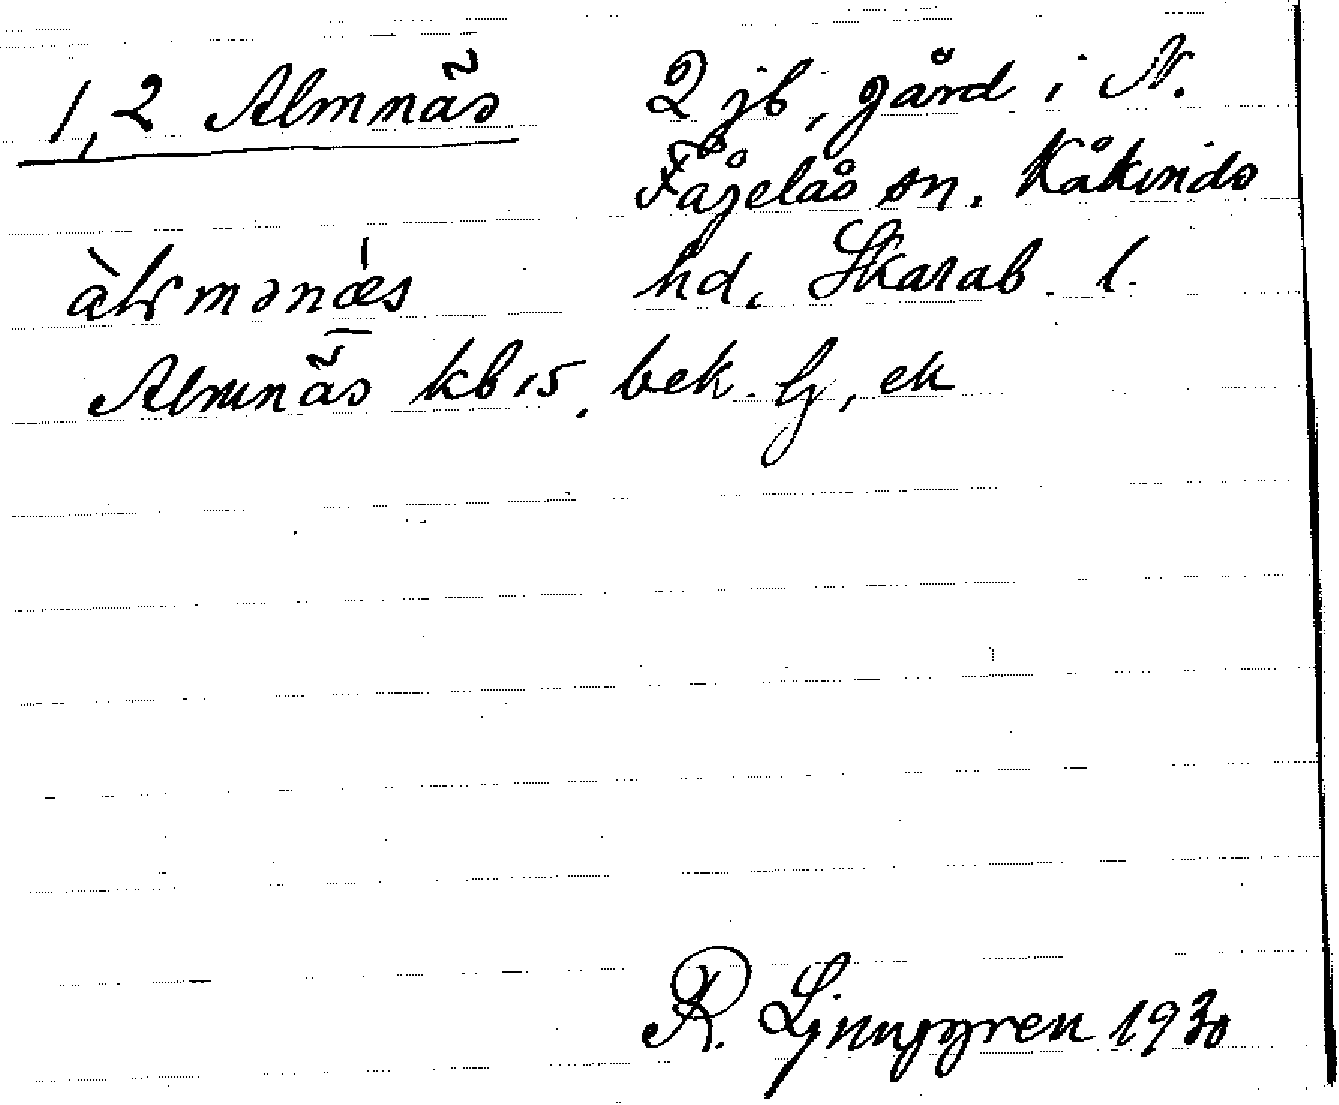 1,2 Almnäs
2 jb, gård i N.
Fågelås sn. Kåkinds
hd. Skarab. l.
àlmənæs
Almnäs kb 15, bek. Lj, ek
R. Ljunggren 1930